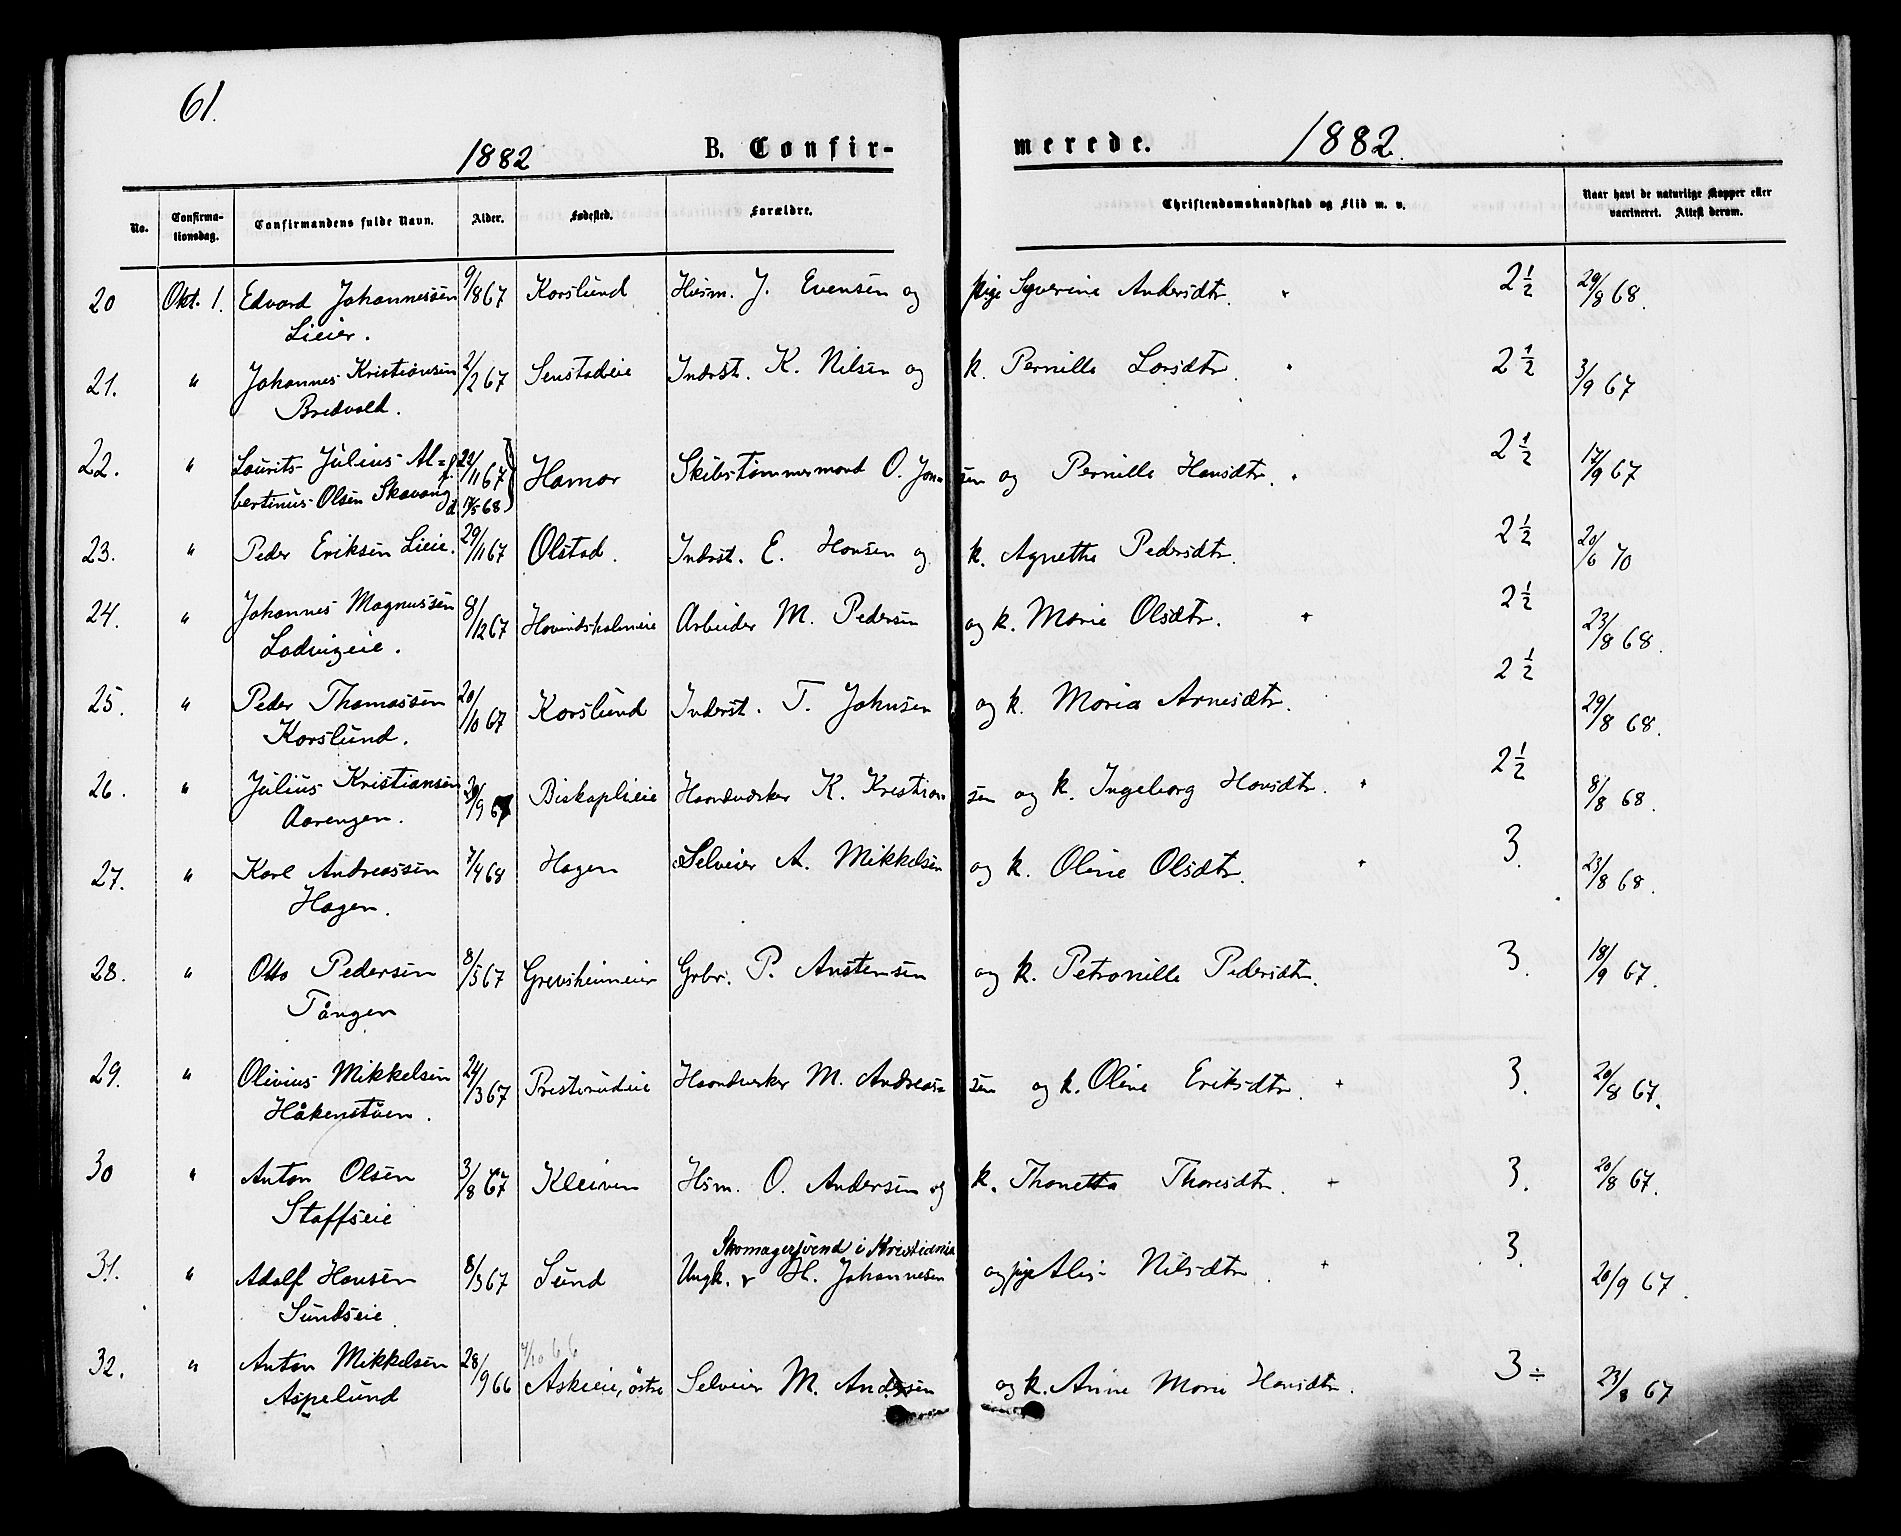 61.
1882 B. Confir- merede. 1882.
No. Confirma-tionsdag. Confirmandens fulde Navn. Alder. Fødested. Forældre. Christendomskundskab og Flid m. v. Naar havt de naturlige Kopper eller vaccineret. Attest derom.
20 Okt. 1. Edvard Johannessen 9/8 67 Korslund Husm. J. Evensen og pige Syverine Andersdtr. 2 1/2 29/8 68.
Lieier.
21. " Johannes Kristiansen 2/2 67 Senstadeie Inderst. K. Nilsen og k. Pernille Larsdtr. " 2 1/2 3/9 67
Bredvold.
22. " Laurits Julius Al= 22/11 67 Hamar Skibstømmermand O. Jon= sen og Pernille Hansdtr. 2 1/2 17/9 67
bertinus Olsen Skavang 17/5 68
23. " Peder Eriksen Lieie. 29/11 67 Olstad. Inderst. E. Hansen og k. Agnethe Pedersdtr. 2 1/2 20/6 70
24. " Johannes Magnussen 8/12 67 Hovindsholmeie Arbeider M. Pedersen og k. Marie Olsdtr. " 2 1/2 23/8 68.
Ladvigeie.
25. " Peder Thomassen 20/10 67 Korslund Inderst. T. Johnsen og k. Maria Arnesdtr. 2 1/2 29/8 68.
Korslund.
26. " Julius Kristiansen 20/9 67 Biskopslieie Haandverker K. Kristian= sen og k. Ingeborg Hansdtr. " 2 1/2 8/8 68.
Aarengen.
27. " Karl Andreassen 7/4 68 Hagen Selveier A. Mikkelsen og k. Oline Olsdtr. " 3. 23/8 68.
Hagen.
28. " Otto Pedersen 8/5 67 Grevsheimeie Grbr. P. Austensen og k. Petronille Pedersdtr. 3. 18/9 67.
Tången
29. " Olivius Mikkelsen 24/3 67 Presterudeie Haandverker M. Andreas= sen og k. Oline Eriksdtr. " 3. 20/8 67.
Håkenstuen.
30 " Anton Olsen 3/8 67 Kleiven Hsm. O. Andersen og k. Thonetta Thoresdtr. " 3. 20/8 67.
Staffseie
Skomagersvend i Kristiania
31. " Adolf Hansen 8/3 67 Sund Ungk. H. Johannesen og pige Alis Nilsdtr. " 3. 20/9 67.
Sundseie.
7/10 66
32. " Anton Mikkelsen 28/9 66 Askieie, östre Selveier M. Andersen og k. Anne Marie Hansdtr. 3 ÷ 23/8 67
Aspelund